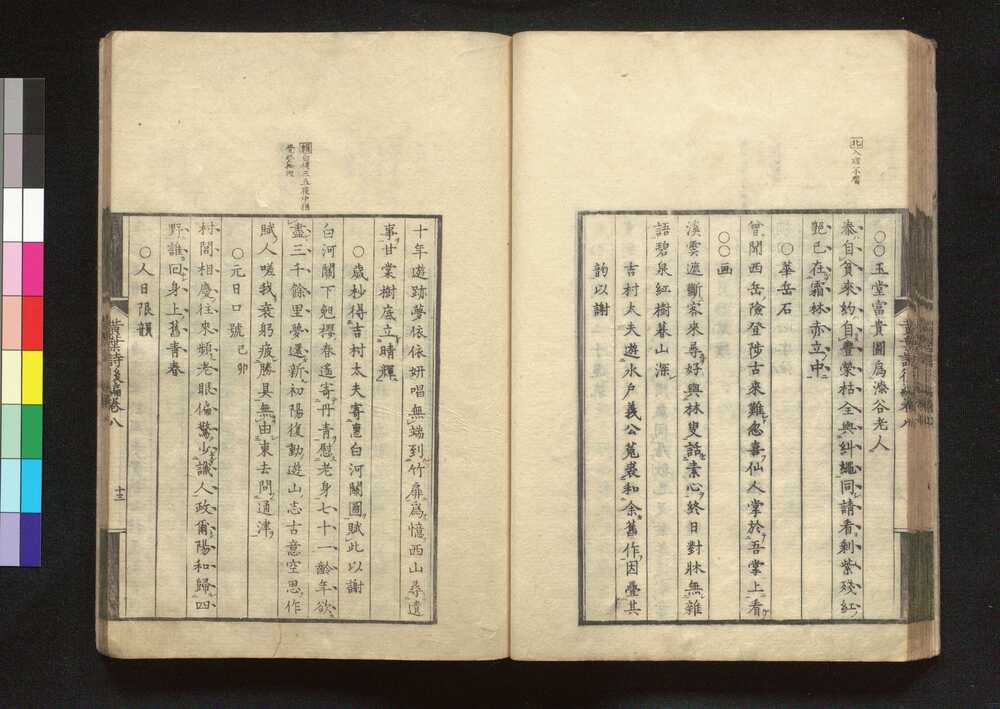 北 入理不腐
〇〇玉堂富貴圖爲澹谷老人
泰自貧來約自豐榮枯全與糾繩同請看剩紫殘紅
艶已在霜林赤立中
〇華岳石
曾聞西岳險登陟古來難忽喜仙人掌於吾掌上看
〇〇画
溪雲遮斷客來尋好與林叟話素心終日對牀無雜
語碧泉紅樹暮山深
吉村大夫遊水戶義公菟裘和余舊作因疊其
韵以謝
十年遊跡夢依依妍唱無端到竹扉爲憶西山尋遺
事甘棠樹底立晴輝
〇歲杪得吉村太夫寄惠白河關圖賦此以謝
白河關下兜櫻春遙寄丹青慰老身七十一齡年欲
盡三千餘里夢還新初陽復動遊山志古意空思作
賦人嗟我衰躬疲勝具無由東去問通津
〇元日口號己卯
村閭相慶往來頻老眼偏驚少識人政爾陽和歸四
野誰回身上舊青春
〇人日限韻
黃葉詩後編卷八
十三